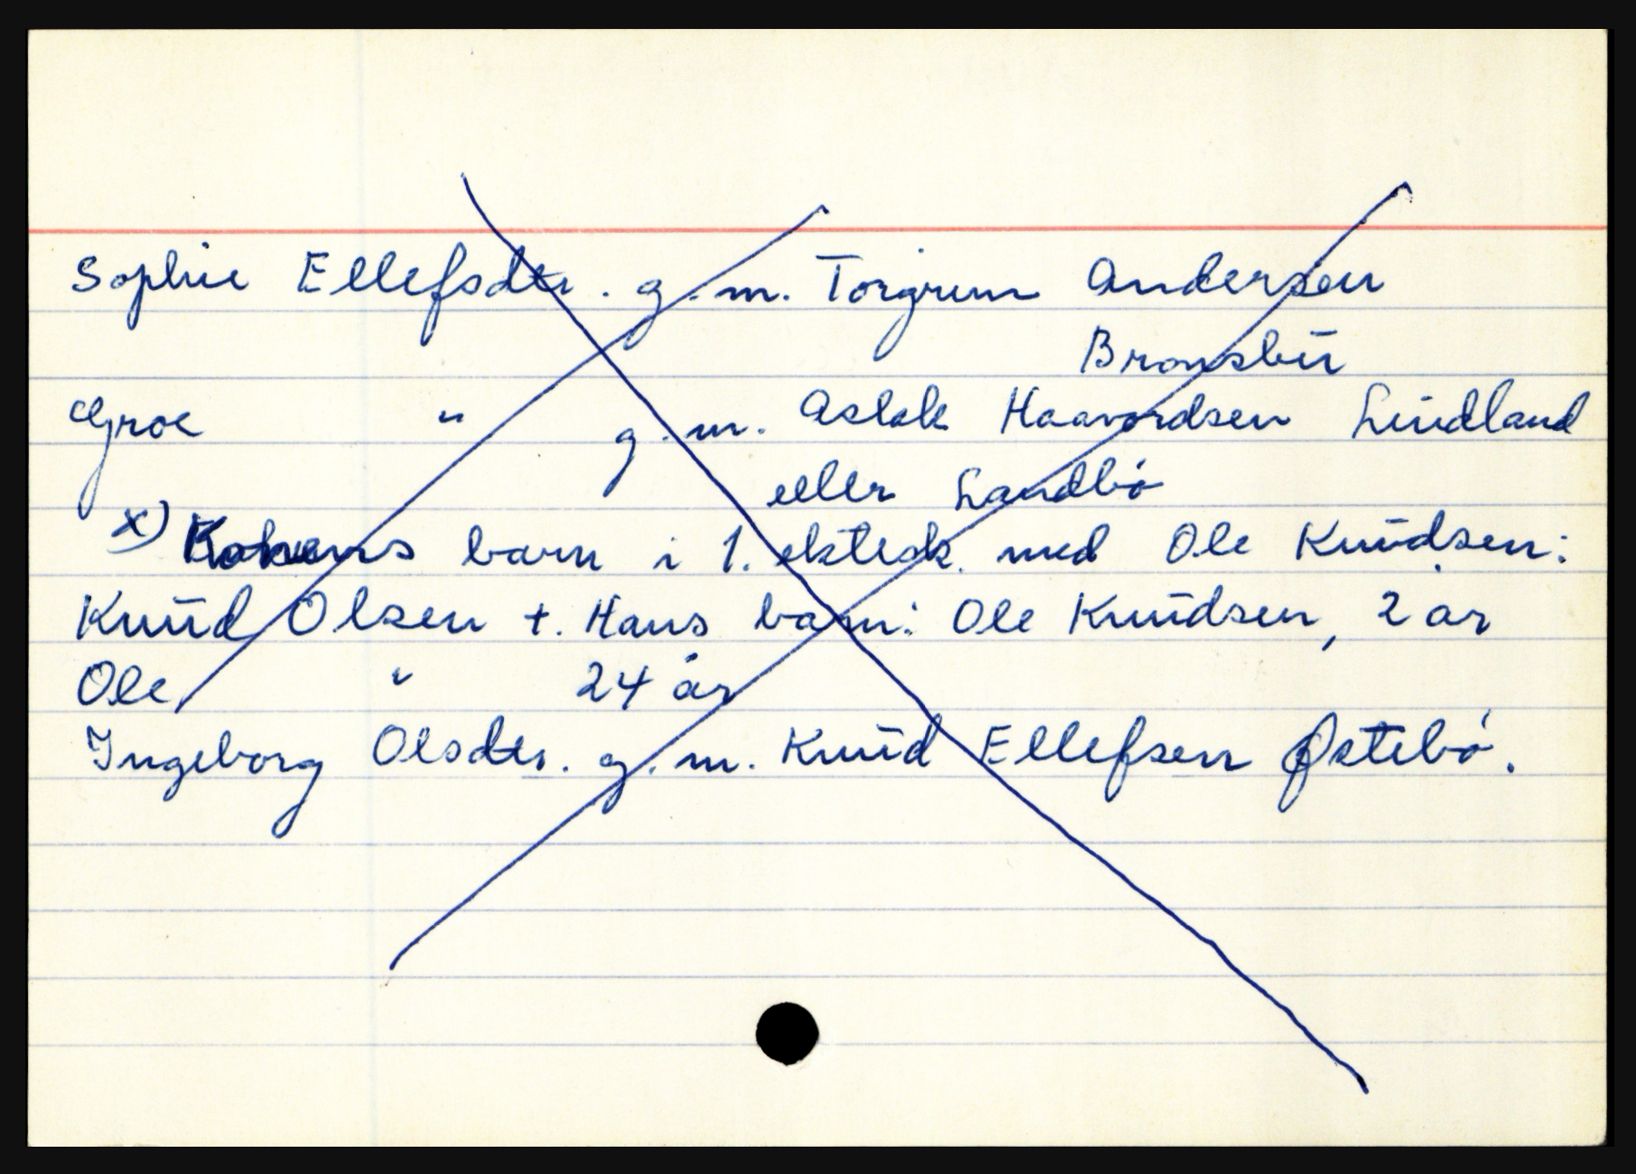 Sophie Ellefsdtr. g.m. Torgrim Andersen
Bronsbu
Groe " g.m. Aslak Haavordsen Lindland
eller Landbö
x) Konens barn i 1. ektesk. med Ole Knudsen:
Knud Olsen +. Hans barn: Ole Knudsen, 2 år
Ole " 24 år
Ingeborg Olsdtr. g.m. Knud Ellefsen Østebö.